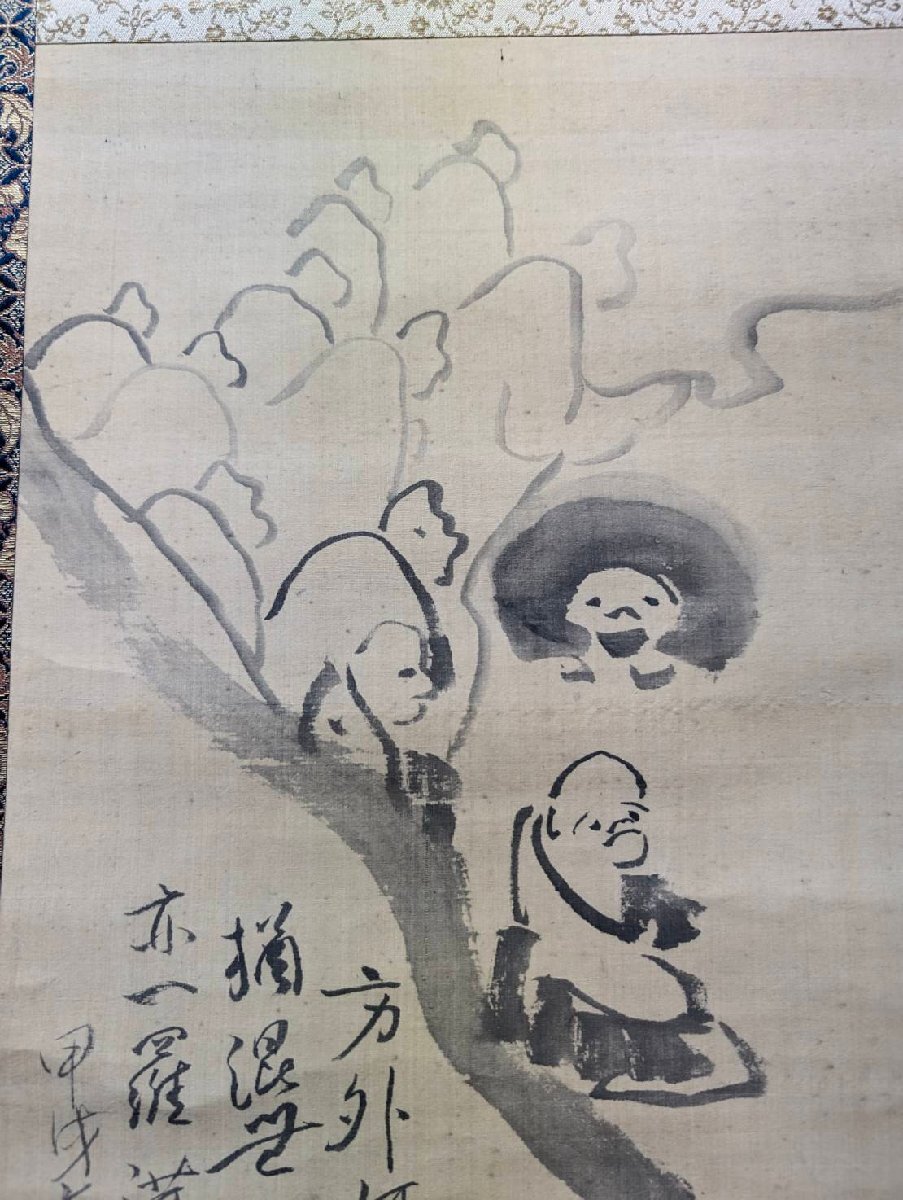 方外
猶混世
亦一羅漢
甲戌